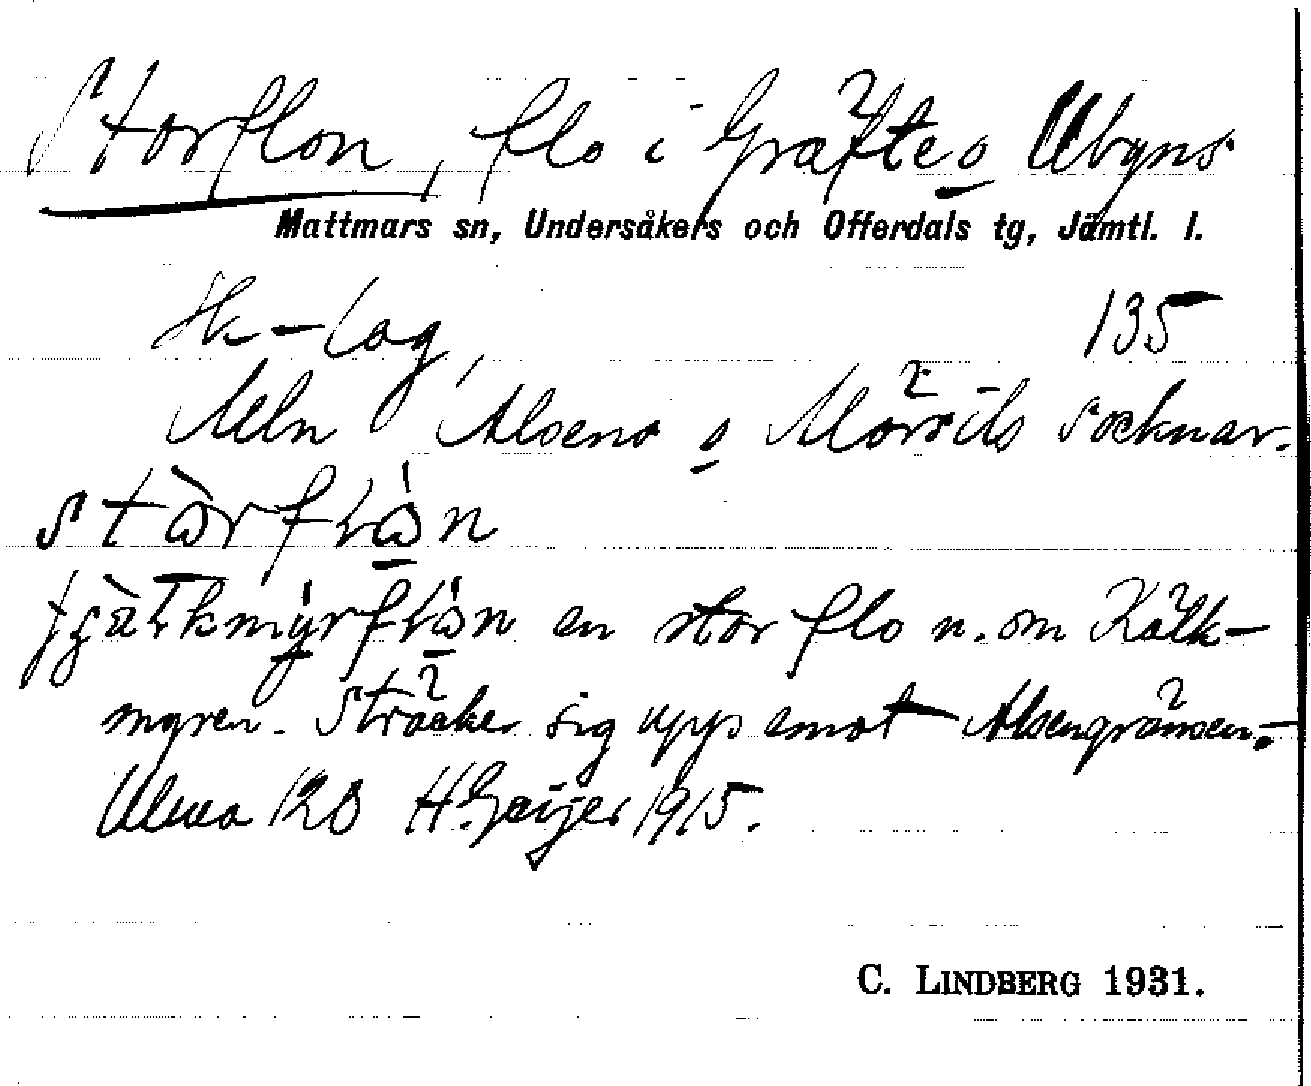 Storflon, flo i Gräfte o Ubyns
Mattmars sn, Undersåkers och Offerdals tg, Jämtl. l.
Hk-lag, 135
Meln Alsens o Mörsils socknar.
en stor flo n. om Kälk-
myren. Sträcker sig upp emot Alsengränsen.-
Ulma 128 H. Geijer 1915.
C. LINDBERG 1931.